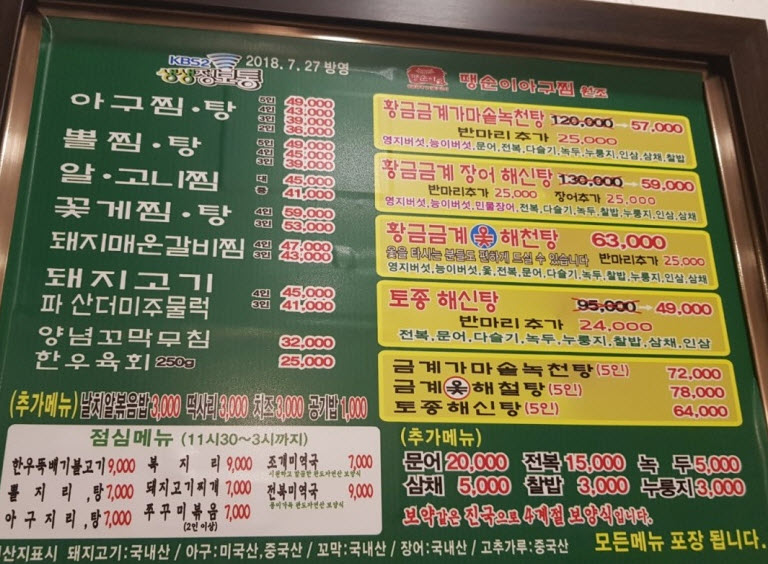 KBS2 생생정보통 2018. 7. 27 방영
땡순이아구찜 원조
아구찜·탕 5인 49,000
4인 43,000
3인 39,000
2인 36,000
뽈찜·탕 5인 49,000
4인 45,000
3인 39,000
알·고니찜 대 45,000
중 41,000
꽃게찜·탕 4인 59,000
3인 53,000
돼지매운갈비찜 4인 47,000
3인 43,000
돼지고기
파 산더미주물럭 4인 45,000
3인 41,000
양념꼬막무침 32,000
한우육회 250g 25,000
(추가메뉴) 날치알볶음밥 3,000 떡사리 3,000 치즈 3,000 공기밥 1,000
점심메뉴 (11시30~3시까지)
한우뚝배기불고기 9,000 복지리 9,000 조개미역국 7,000
뽈지리,탕 7,000 돼지고기찌개 7,000 전복미역국 9,000
아구지리,탕 7,000 쭈꾸미볶음 7,000
(2인 이상)
황금금계가마솥녹천탕 120,000 → 57,000
반마리 추가 25,000
영지버섯,능이버섯,문어,전복,다슬기,녹두,누룽지,인삼,삼채,찰밥
황금금계 장어 해신탕 130,000 → 59,000
반마리추가 25,000 장어추가 25,000
영지버섯,능이버섯,민물장어,전복,다슬기,녹두,찰밥,누룽지,인삼,삼채
황금금계 옻 해천탕 63,000
옻을 타시는 분들도 편하게 드실 수 있습니다 반마리추가 25,000
영지버섯,능이버섯,옻,전복,문어,다슬기,녹두,찰밥,누룽지,인삼,삼채
토종 해신탕 95,000 → 49,000
반마리 추가 24,000
전복,문어,다슬기,녹두,누룽지,찰밥,삼채,인삼
금계가마솥녹천탕(5인) 72,000
금계 옻 해철탕(5인) 78,000
토종해신탕(5인) 64,000
(추가메뉴)
문어 20,000 전복 15,000 녹두 5,000
삼채 5,000 찰밥 3,000 누룽지 3,000
보약같은 진국으로 4계절 보양식입니다.
산지표시 돼지고기:국내산 / 아구:미국산,중국산 / 꼬막:국내산 / 장어:국내산 / 고추가루:중국산
모든메뉴 포장 됩니다.